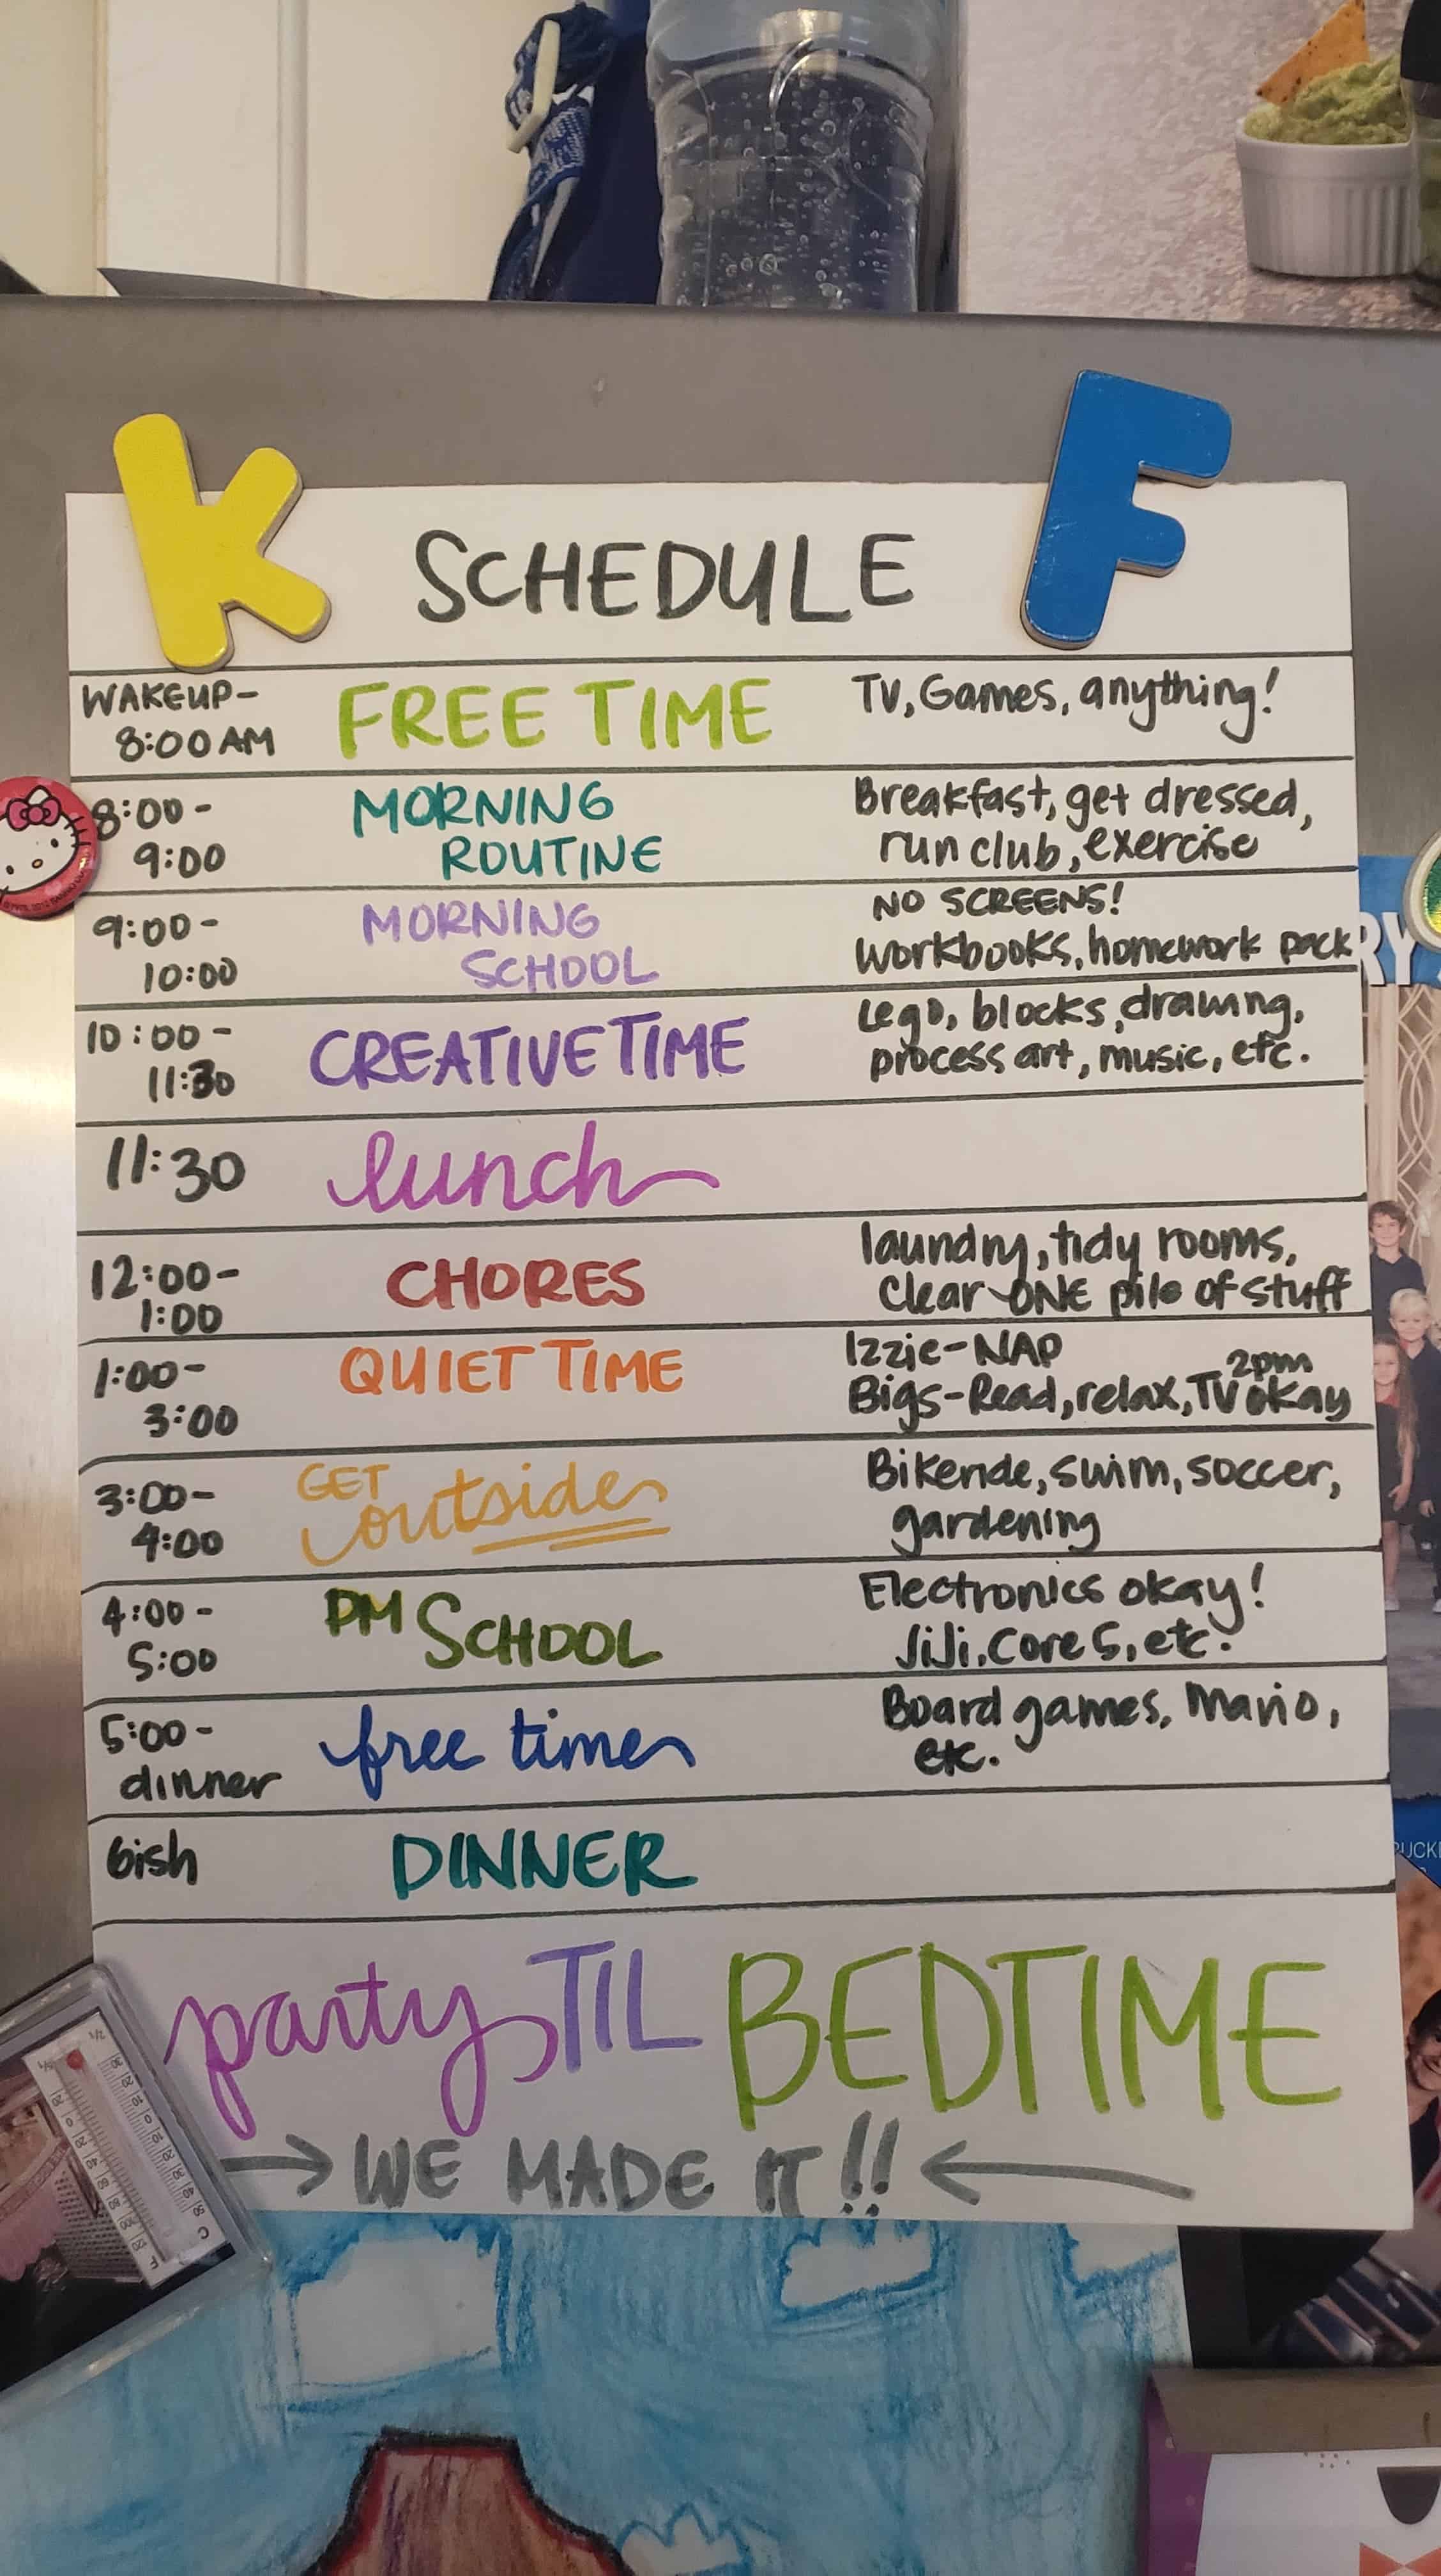 K
F
SCHEDULE
WAKEUP-
8:00 AM
FREE TIME
TV, Games, anything!
8:00-
9:00
MORNING
ROUTINE
Breakfast, get dressed,
run club, exercise
9:00-
10:00
MORNING
SCHOOL
NO SCREENS!
workbooks, homework pack
10:00-
11:30
CREATIVE TIME
Lego, blocks, drawing,
process art, music, etc.
11:30
lunch
12:00-
1:00
CHORES
laundry, tidy rooms,
Clear ONE pile of stuff
1:00-
3:00
QUIET TIME
Izzie-NAP
2pm
Bigs-Read, relax, TV okay
3:00-
4:00
GET
outside
Bikeride, swim, soccer,
gardening
4:00-
5:00
PM SCHOOL
Electronics okay!
JiJi, Core 5, etc.
5:00-
dinner
free time
Board games, Mario,
etc.
6ish
DINNER
party TIL BEDTIME
→ WE MADE IT!! ←
RY